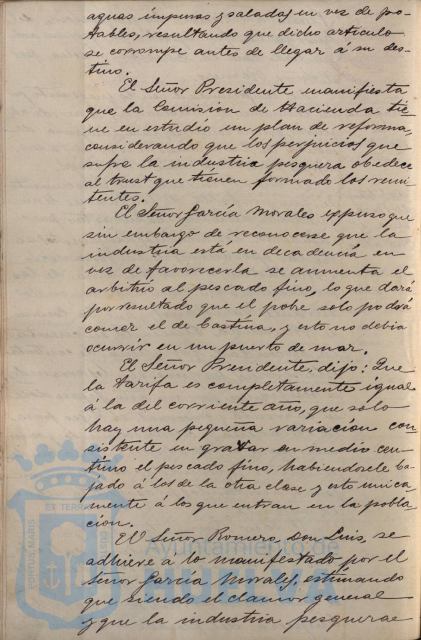 aguas impuras y saladas en vez de po-
tables, resultando que dicho artículo
se corrompe antes de llegar á su des-
tino.
El Señor Presidente manifiesta
que la Comisión de Hacienda tie-
ne en estudio un plan de reforma,
considerando que los perjuicios que
sufre la industria pesquera obedece
al trust que tienen formado los remi-
tentes.
El Señor García Morales expuso que
sin embargo de reconocerse que la
industria está en decadencia en
vez de favorecerla se aumenta el
arbitrio al pescado fino, lo que dará
por resultado que el pobre solo podrá
comer el de Castina, y esto no debia
ocurrir en un puerto de mar.
El Señor Presidente, dijo: Que
la tarifa es completamente igual
á la del corriente año, que solo
hay una pequeña variación con-
sistente en gravar en medio cen-
timo el pescado fino, habiendosele ba-
jado á los de la otra clase y esto unica-
mente á los que entran en la pobla-
cion.
El Señor Romero, Don Luis, se
adhiere á lo manifestado por el
Señor García Morales, estimando
que siendo el clamor general
y que la industria pesquera
PORTUS MARIS
ET TERRAE
CUSTODIA
Ayuntamiento de